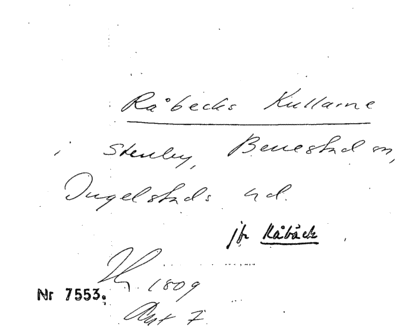 Råbecks Kullarne
i Stenby, Benestad sn,
Ingelstads hd.
jfr Råbäck
1809
Nr 7553.
Akt 7